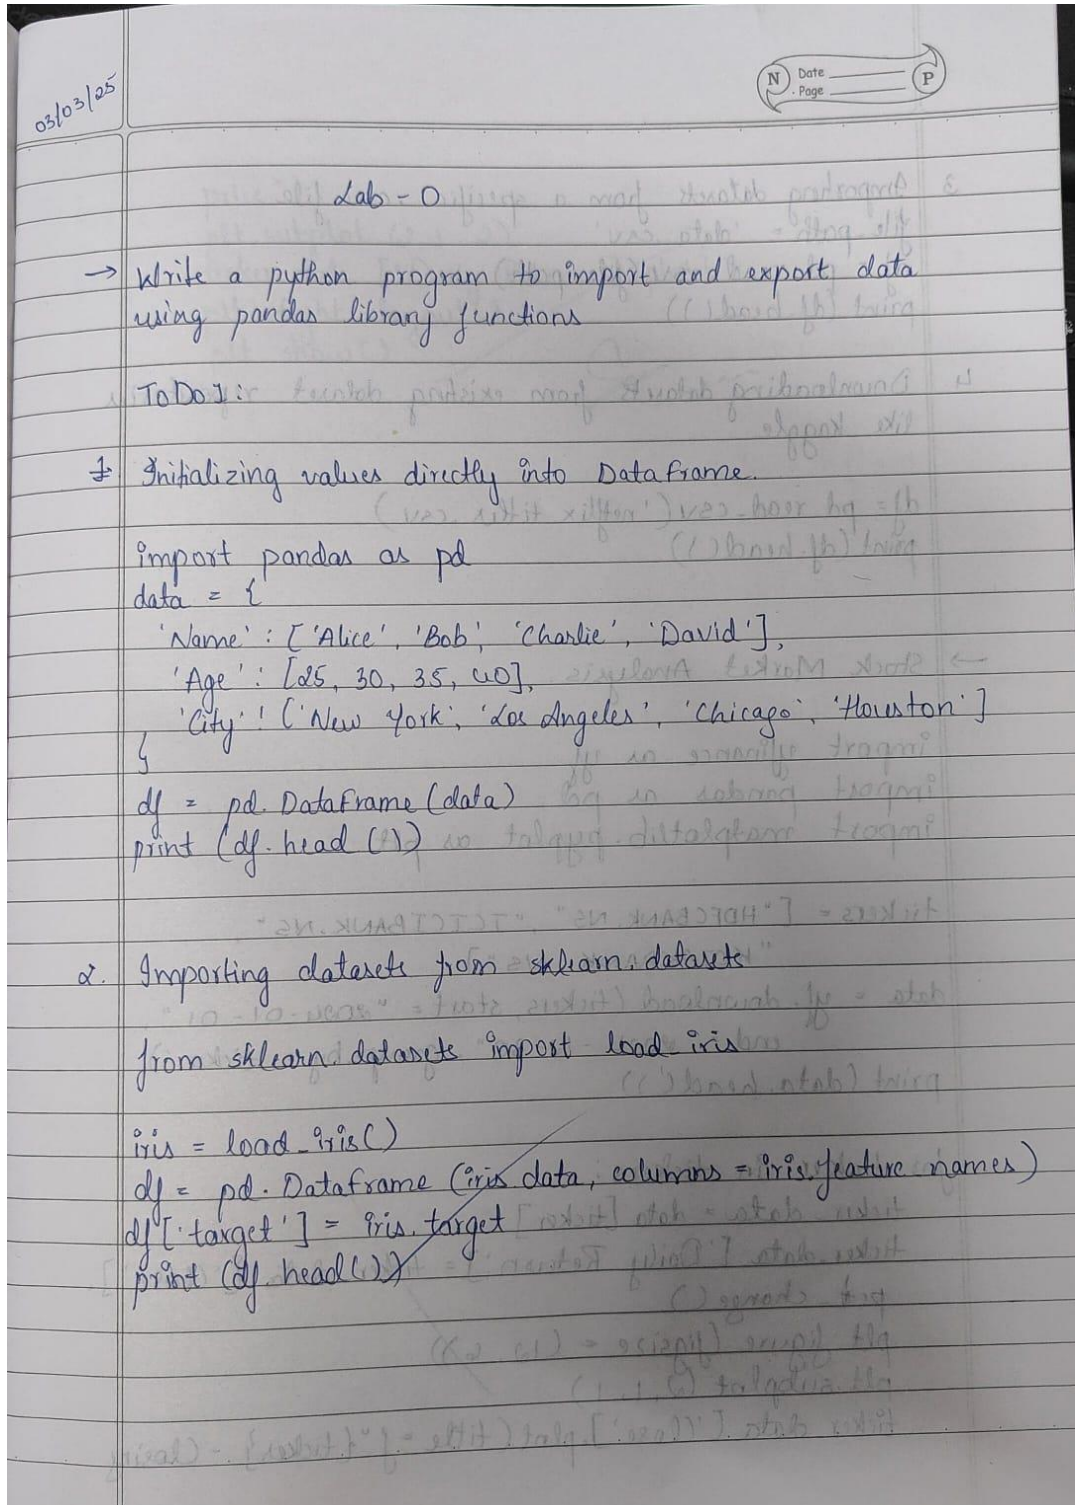 03/03/25
N Date P
Page
Lab - 0
→ Write a python program to import and export data
using pandas library functions
To Do 1 :
1. Initializing values directly into DataFrame.
import pandas as pd
data = {
'Name' : ['Alice', 'Bob', 'Charlie', 'David'],
'Age' : [25, 30, 35, 40],
'City' : ['New York', 'Los Angeles', 'Chicago', 'Houston']
}
df = pd. DataFrame (data)
print (df. head ())
2. Importing datasets from sklearn. datasets
from sklearn. datasets import load_iris
iris = load_iris()
df = pd. Dataframe (iris. data, columns = iris. feature names)
df ['target'] = iris. target
print (df. head ())